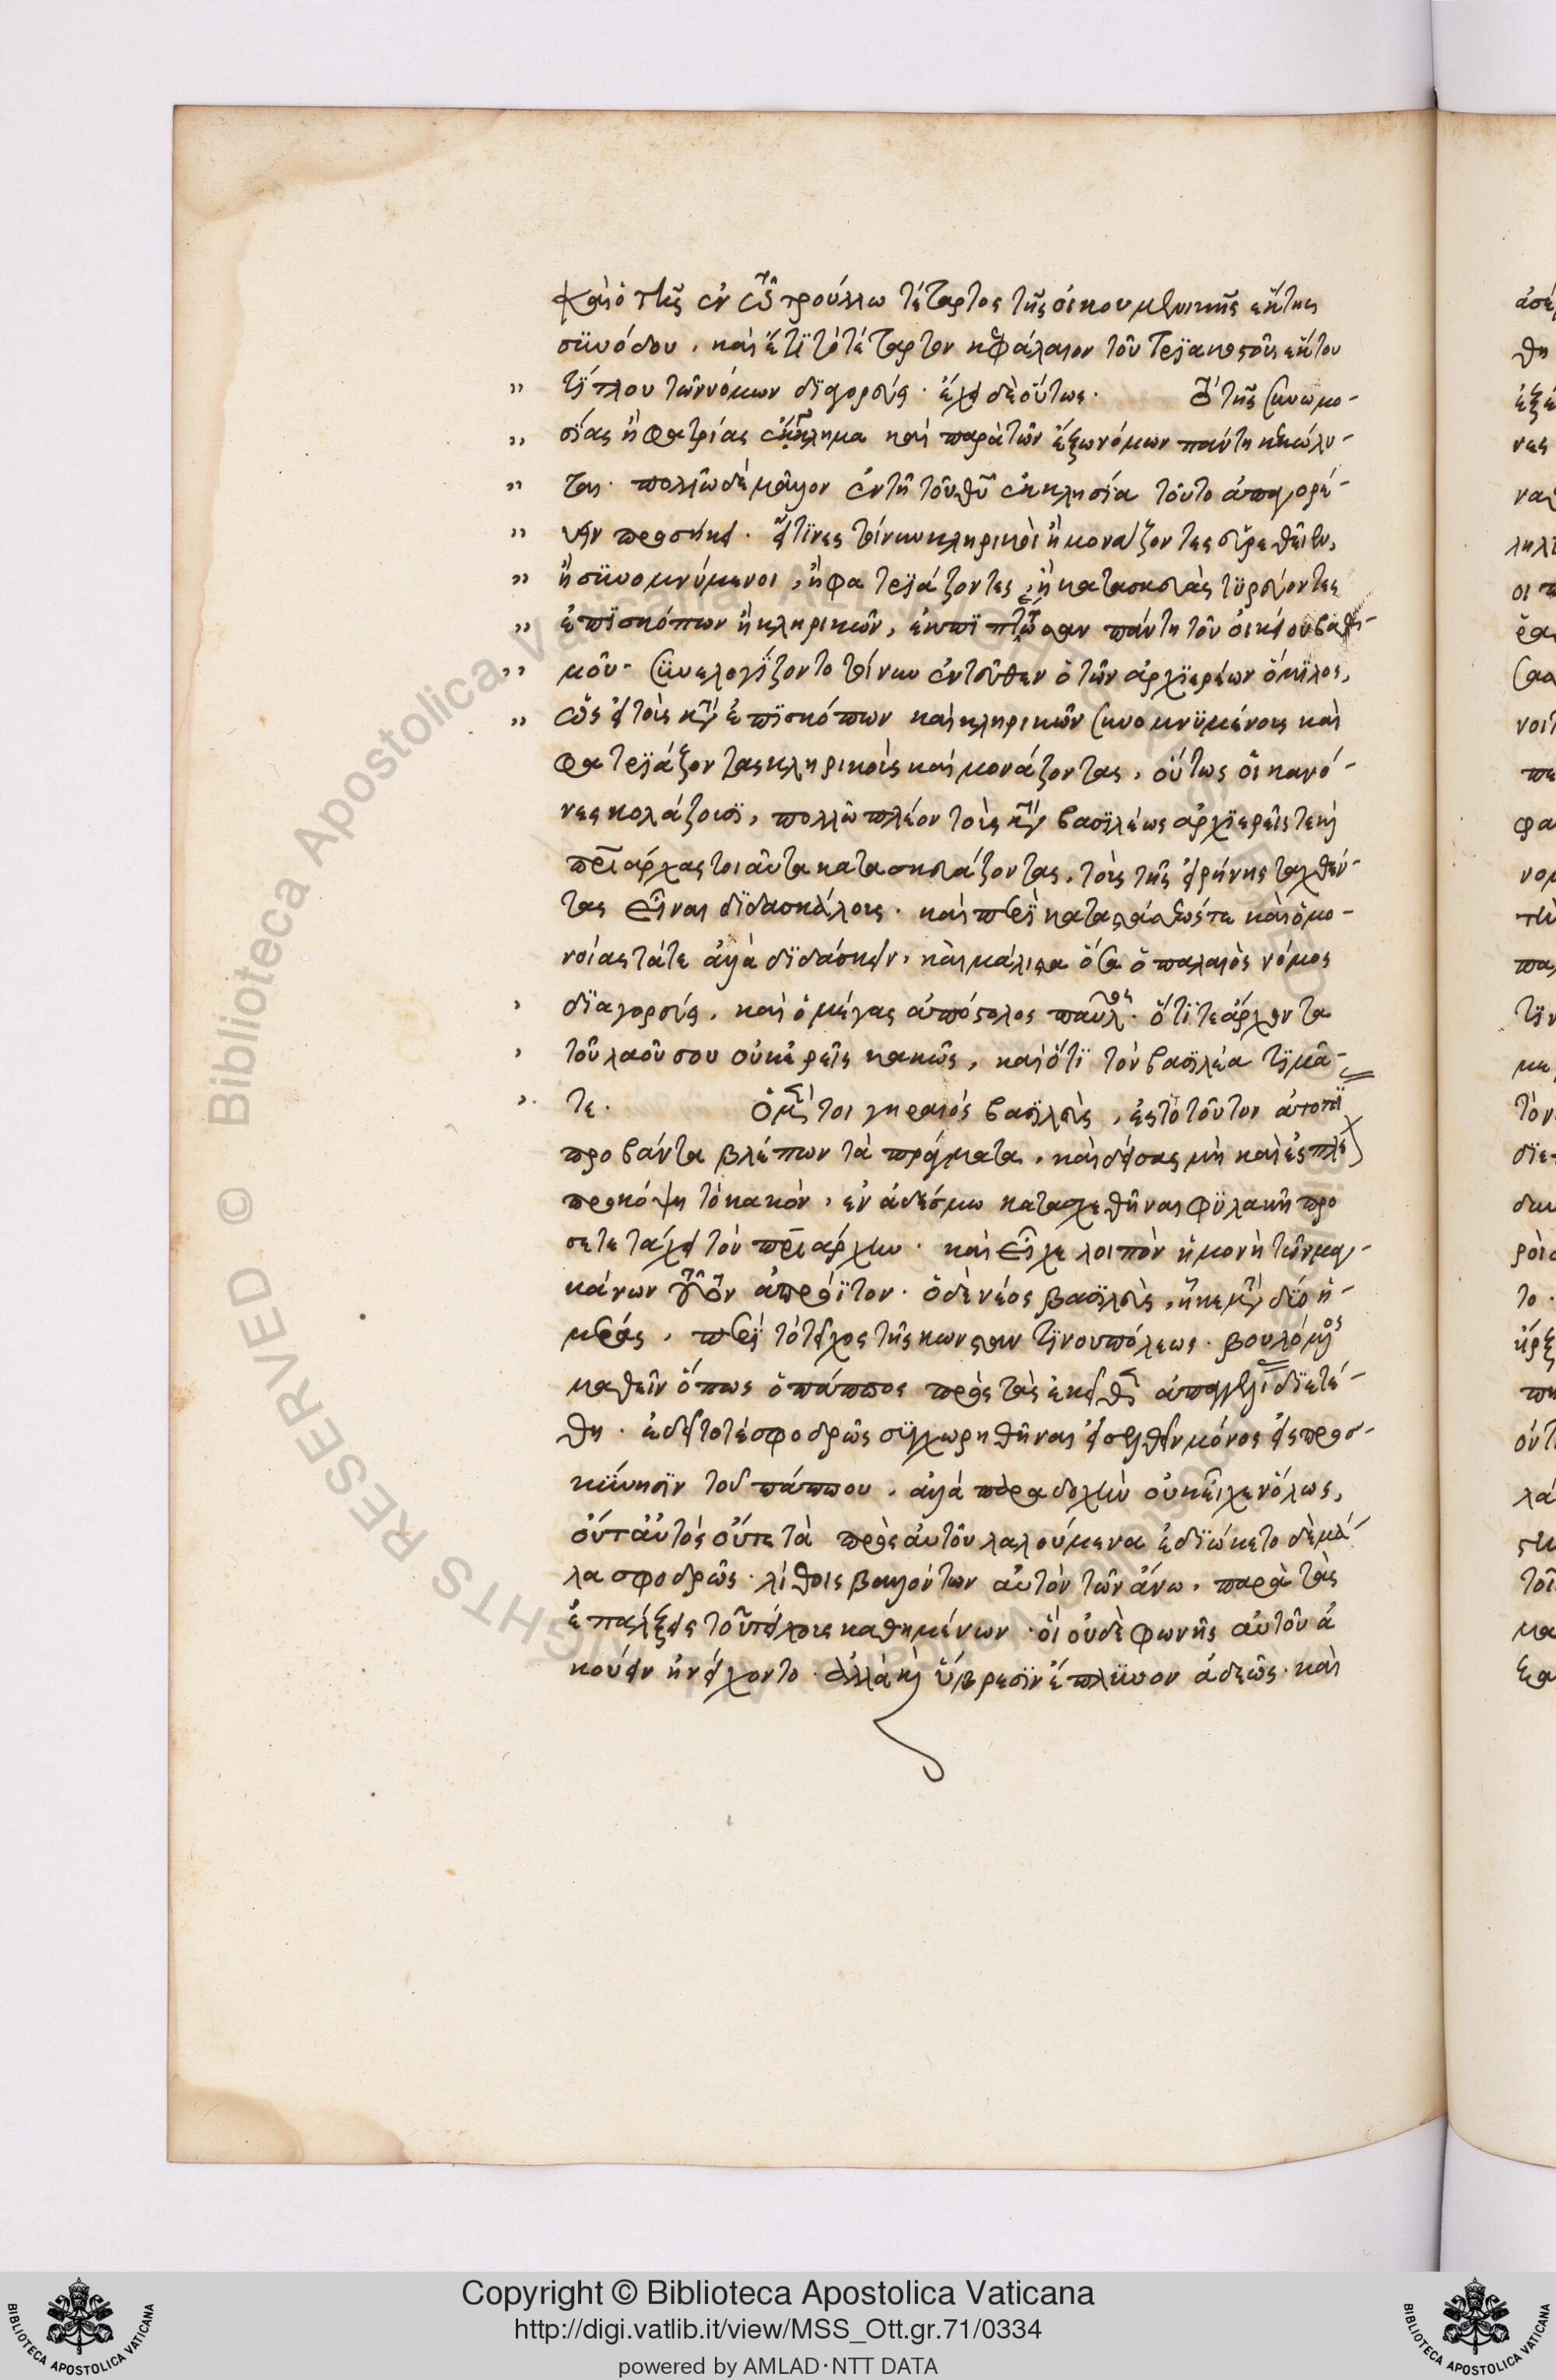 καὶ ὁ τῆς ἐν τῶ τρούλλω τέταρτος τῆς οἰκουμενικῆς ἕκτης
συνόδου, καὶ ἔτι τὸ τέταρτον κεφάλαιον τοῦ τριακοστοῦ ἕκτου
τίτλου τῶν νόμων διαγορεύει. ἔχει δὲ οὕτως. τὸ τῆς συνωμο-
σίας ἢ φατρίας ἔγκλημα καὶ παρὰ τῶν ἔξω νόμων πάντη κεκώλυ-
ται. πολλῶ δὲ μᾶλλον ἐν τῆ τοῦ θῦ ἐκκλησία τοῦτο ἀπαγορεύ-
ειν προσήκει. εἴ τινες τοίνυν κληρικοὶ ἢ μονάζοντες εὑρεθεῖεν,
ἢ συνομνύμενοι, ἢ φατριάζοντες, ἢ κατασκευὰς τυρεύοντες
ἐπισκόπων ἢ κληρικῶν, ἐκπιπτέτωσαν πάντη τοῦ οἰκείου βαθ-
μοῦ. συνελογίζοντο τοίνυν ἐντεῦθεν ὁ τῶν ἀρχιερέων ὅμιλος,
ὡς εἰ τοὺς κατὰ ἐπισκόπων καὶ κληρικῶν συνομνυμένους καὶ
φατριάζοντας κληρικοὺς καὶ μονάζοντας, οὕτως οἱ κανό-
νες κολάζουσι, πολλῶ πλέον τοὺς κατὰ βασιλέως ἀρχιερεῖς τε καὶ
πριάρχας τοιαῦτα κατασκευάζοντας, τοὺς τῆς εἰρήνης ταχθέν-
τας εἶναι διδασκάλους. καὶ περὶ καταστάσεώς τε καὶ ὁμο-
νοίας τὰ τε ἄλλα διδάσκειν, καὶ μάλιστα ὅσα ὁ παλαιὸς νόμος
διαγορεύει, καὶ ὁ μέγας ἀπόστολος παῦλος. ὅτι τε ἄρχοντα
τοῦ λαοῦ σου οὐκ ἐρεῖς κακῶς, καὶ ὅτι τὸν βασιλέα τιμᾶ-
τε. ὅμως τοι γηραιὸς βασιλεὺς, ἐς τὸ τοῦτον ἀτοπί
προβάντα βλέπων τὰ πράγματα, καὶ δείσας μὴ καὶ ἐς πλέ
προκόψη τὸ κακὸν, ἐν ἀδέσμω κατασχεθῆναι φυλακῆ προ
σετετάχει τὸν πριάρχην. καὶ εἶχε λοιπὸν ἡ μονὴ τῶν μαγ-
κάνων τοῦτον ἀπρόϊτον. ὁ δὲ νέος βασιλεὺς, ἧκε μετὰ δύο ἡ-
μέρας, περὶ τὸ τεῖχος τῆς κωνσταντινουπόλεως. βουλόμενος
μαθεῖν ὅπως ὁ πάππος πρὸς τὰς ἐκεῖθεν ἀπαγγελίας διετέ-
θη. ἐδεῖτο τε σφοδρῶς συγχωρηθῆναι εἰσελθεῖν μόνος εἰς προσ-
κύνησιν τοῦ πάππου. ἀλλὰ παραδοχὴν οὐκ εἶχεν ὅλως,
οὔτ' αὐτὸς οὔτε τὰ πρὸς αὐτοῦ λαλούμενα ἐδιώκετο δὲ μά-
λα σφοδρῶς. λίθοις βαλλόντων αὐτὸν τῶν ἄνω, παρὰ τὰς
ἐπάλξεις τοῦ τείχους καθημένων. οἳ οὐδὲ φωνῆς αὐτοῦ ἀ
κούειν ἠνείχοντο. ἀλλὰ καὶ ὕβρεσιν ἔπλυνον ἀδεῶς. καὶ
Copyright © Biblioteca Apostolica Vaticana
http://digi.vatlib.it/view/MSS_Ott.gr.71/0334
powered by AMLAD·NTT DATA